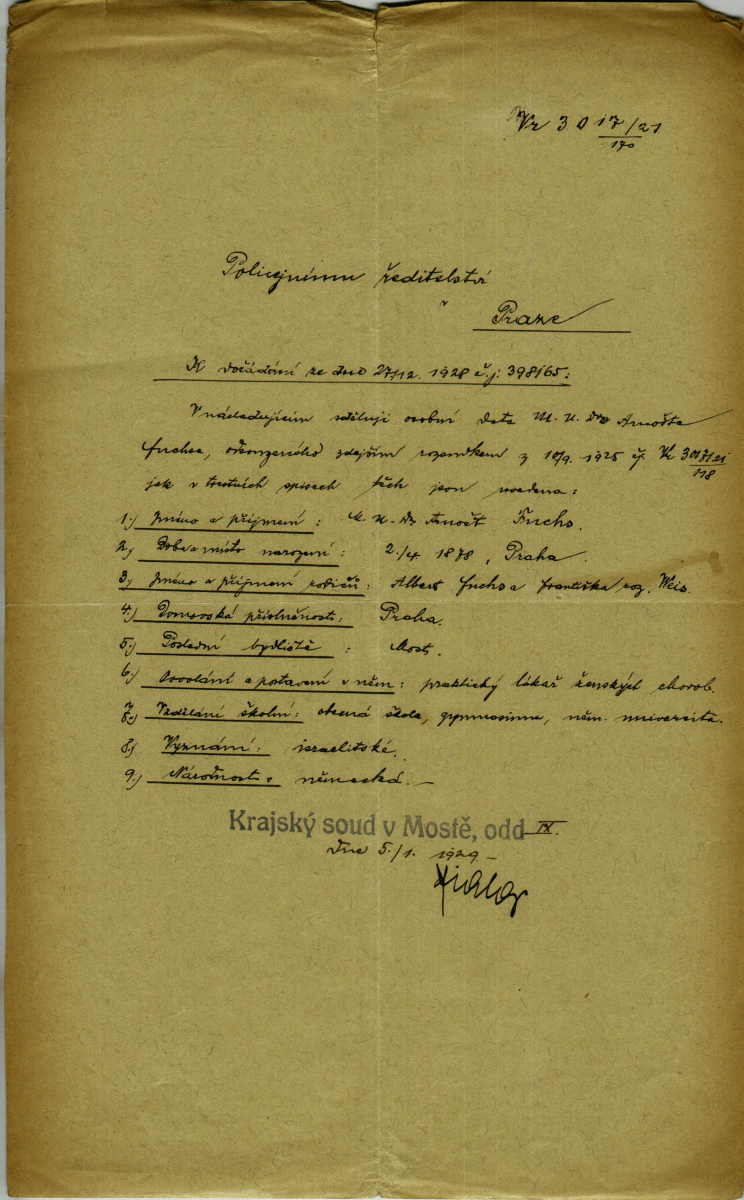 Vr 3017/21
170
Policejnímu ředitelství
v
Praze
K dožádání ze dne 27/12. 1928 č.j: 398165:
V následujícím sděluji osobní data M.U.Dra Arnošta
Fuchsa, odsouzeného zdejším rozsudkem z 10/9. 1925 čj. Vr 3017/21
118
jak v trestních spisech těch jsou uvedena:
1.) Jméno a příjmení: M.U.Dr Arnošt Fuchs.
2.) Doba a místo narození: 2./4. 1878, Praha.
3.) Jméno a příjmení rodičů: Albert Fuchs a Františka roz. Weis.
4.) Domovská příslušnost: Praha.
5.) Poslední bydliště: Most.
6.) Povolání a postavení v něm: praktický lékař ženských chorob.
7.) Vzdělání školní: obecná škola, gymnasium, něm. universita.
8.) Vyznání: israelitské.
9.) Národnost: německá.—
Krajský soud v Mostě, odd IX.
Dne 5./1. 1929 –